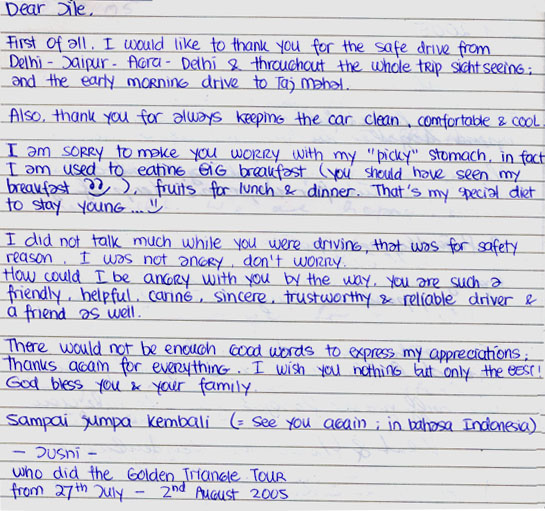 Dear Dile,
First of all, I would like to thank you for the safe drive from
Delhi - Jaipur - Agra - Delhi & throughout the whole trip sightseeing;
and the early morning drive to Taj Mahal.
Also, thank you for always keeping the car clean, comfortable & cool.
I am sorry to make you worry with my "picky" stomach, in fact
I am used to eating BIG breakfast (you should have seen my
breakfast ??), fruits for lunch & dinner. That's my special diet
to stay young...
I did not talk much while you were driving, that was for safety
reason. I was not angry, don't worry.
How could I be angry with you by the way, you are such a
friendly, helpful, caring, sincere, trustworthy & reliable driver &
a friend as well.
There would not be enough good words to express my appreciations;
Thanks again for everything. I wish you nothing but only the BEST!
God bless you & your family.
Sampai jumpa kembali (= see you again; in bahasa Indonesia)
- Jusni -
who did the Golden Triangle Tour
from 27th July - 2nd August 2005